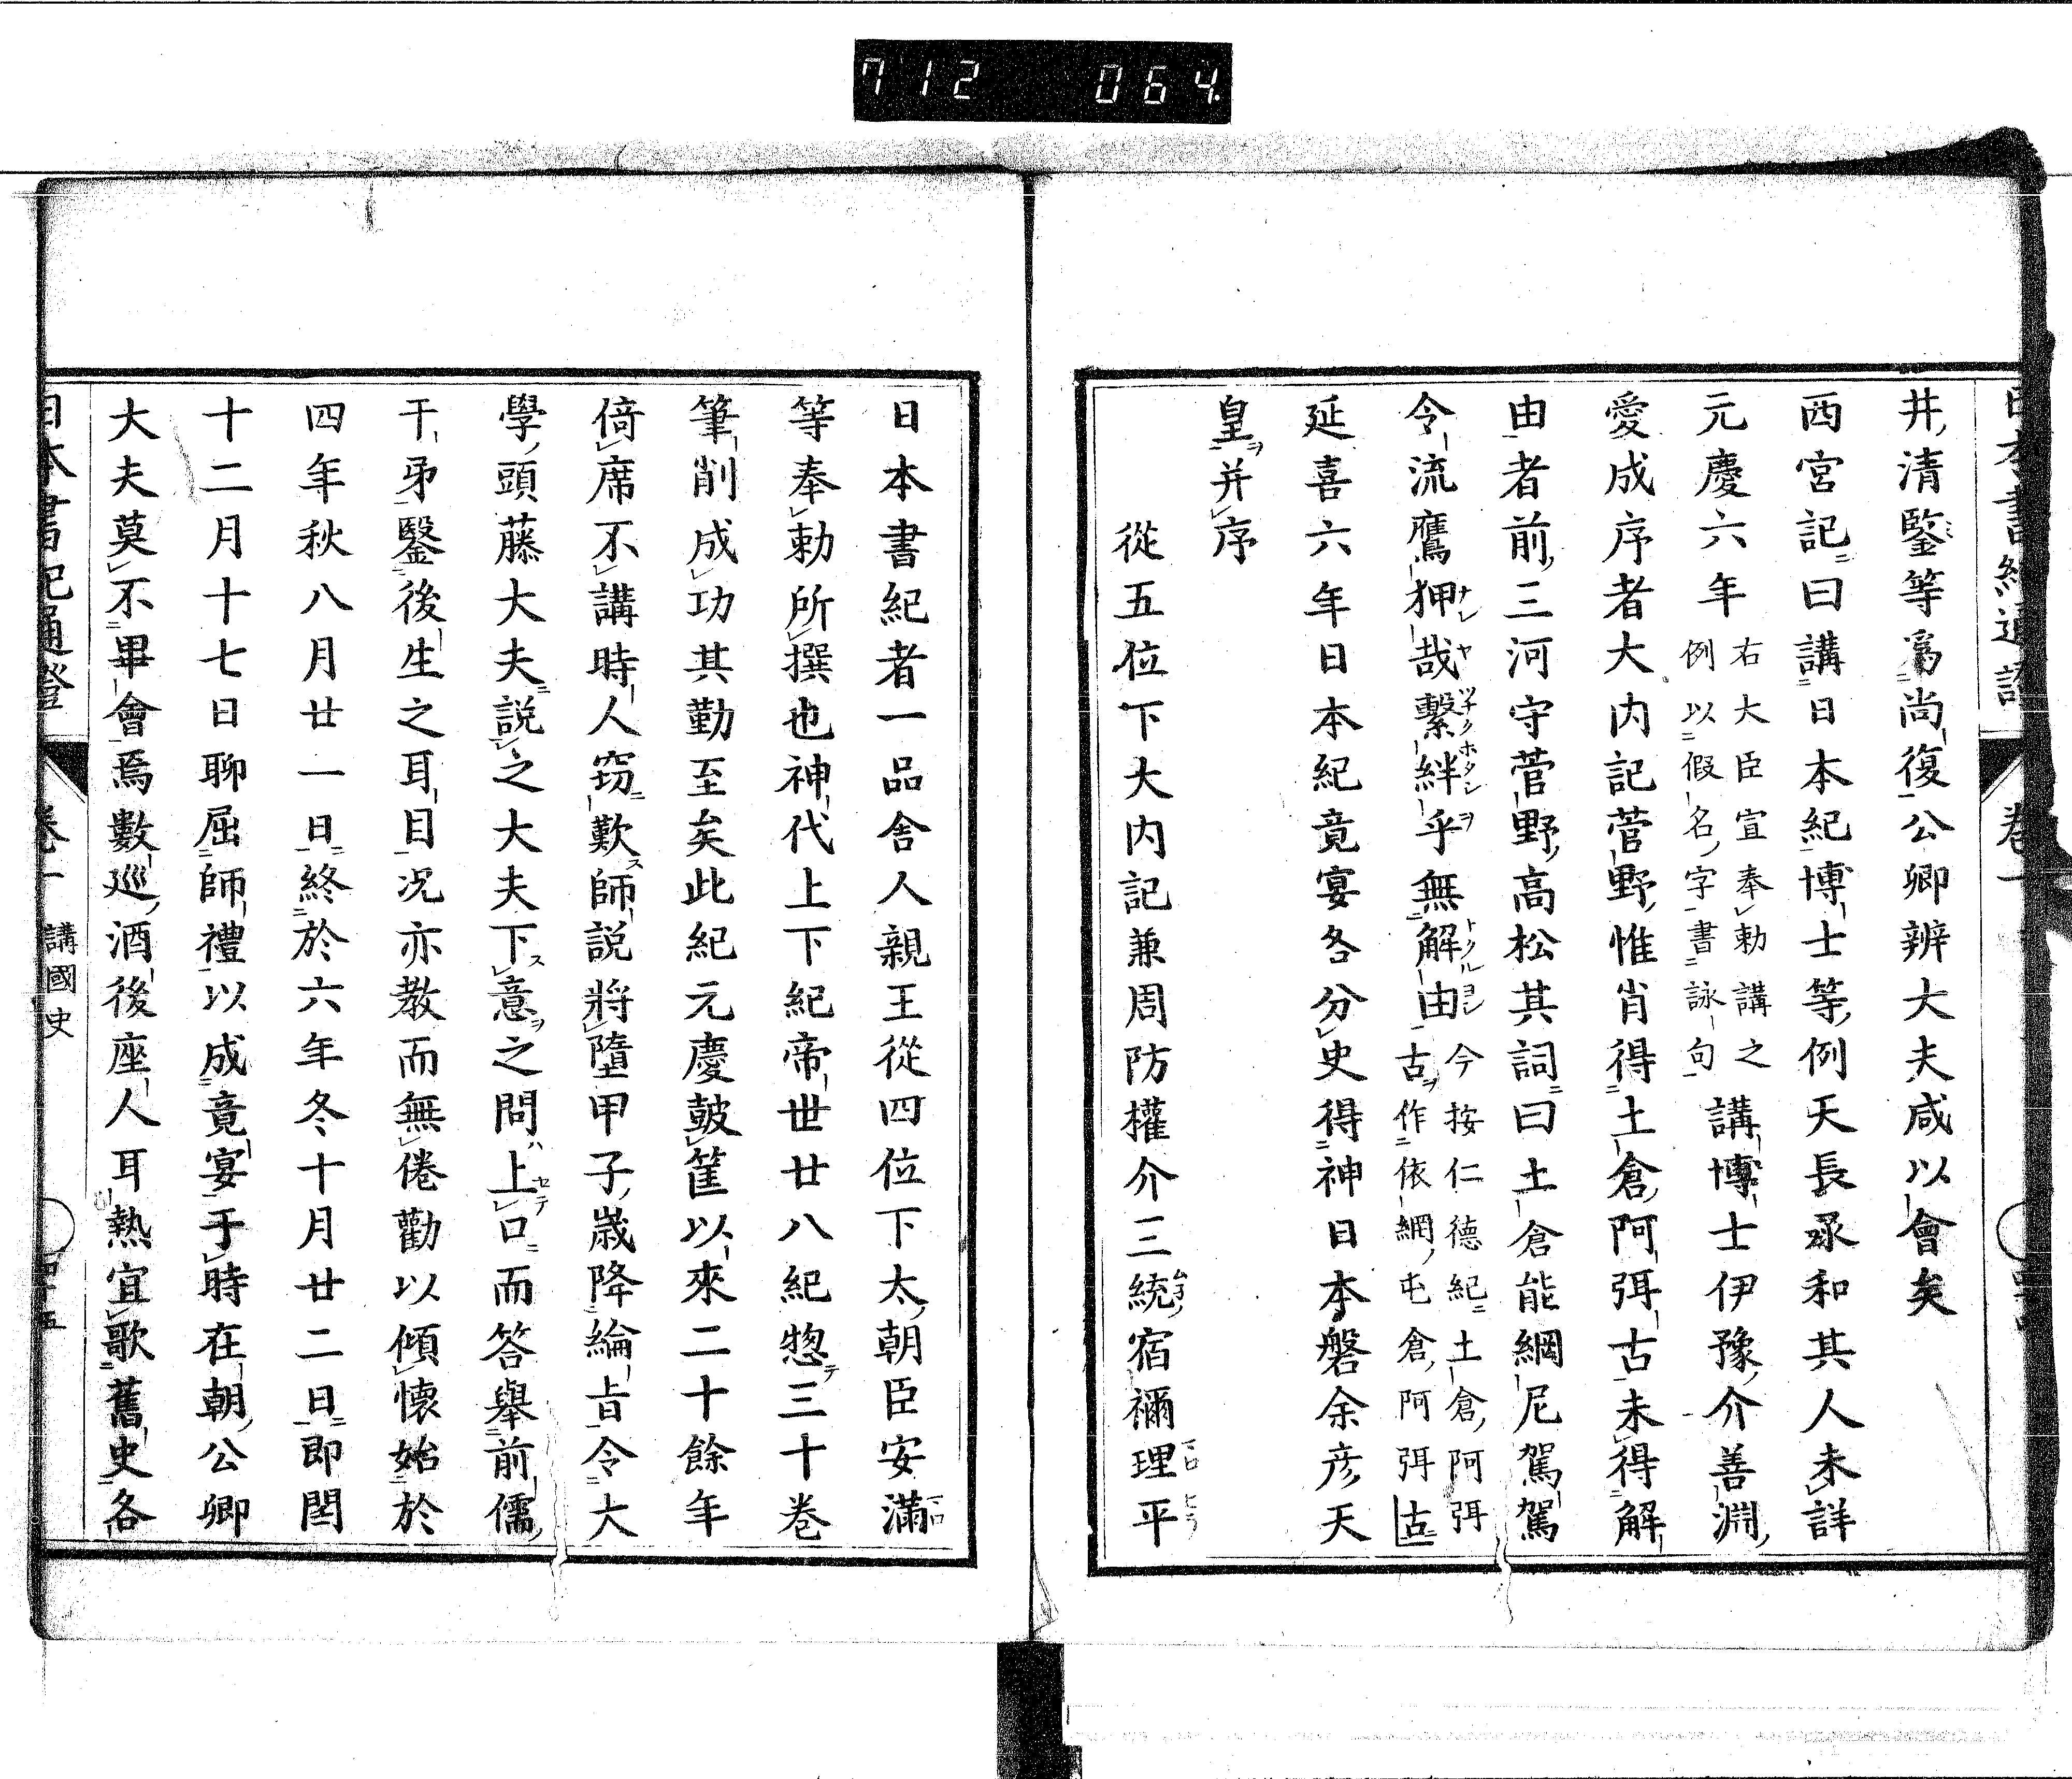 712 064
日本書紀通證
卷一
井清鑒等爲尚復公卿辨大夫咸以會矣
西宮記曰講日本紀博士等例天長承和其人未詳
元慶六年右大臣宣奉勅講之例以假名字書詠句講博士伊豫介善淵
愛成序者大内記菅野惟肖得土倉阿弭古未得解
由者前三河守菅野高松其詞曰土倉能網尼駕駕
令流鷹狎哉繫絆乎無解由今按仁德紀土倉阿弭古作依網屯倉阿弭古
延喜六年日本紀竟宴各分史得神日本磐余彥天
皇并序
從五位下大内記兼周防權介三統宿禰理平
日本書紀者一品舍人親王從四位下太朝臣安滿
等奉勅所撰也神代上下紀帝世廿八紀惣三十卷
筆削成功其勤至矣此紀元慶皷筐以來二十餘年
倚席不講時人窃歎師說將墮甲子歲降綸旨令大
學頭藤大夫說之大夫下意之問上口而答擧前儒
干㫄鑿後生之耳目况亦教而無倦勸以傾懷始於
四年秋八月廿一日終於六年冬十月廿二日即閏
十二月十七日聊屈師禮以成竟宴于時在朝公卿
大夫莫不畢會焉數巡酒後座人耳熱宜歌舊史各
日本書紀通證
卷一
講國史
四十五